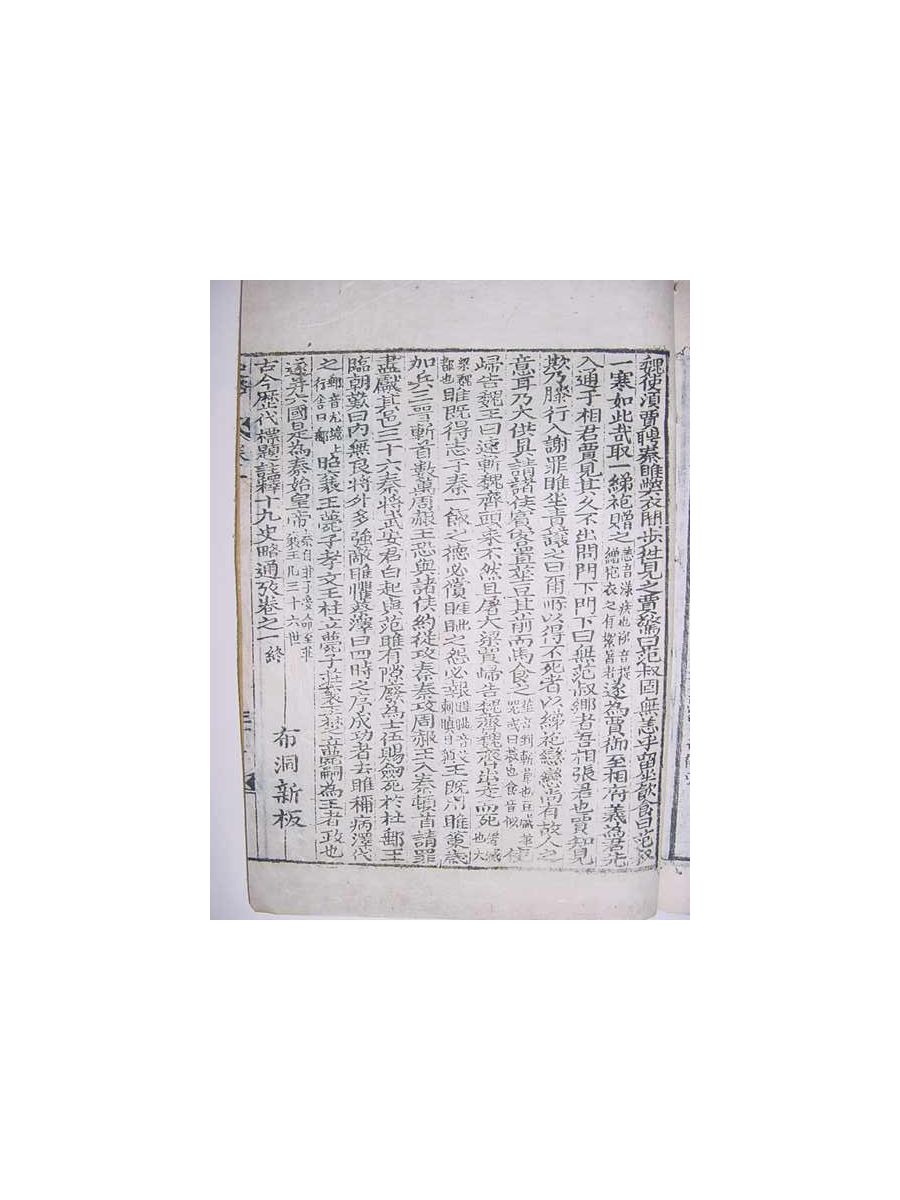 魏使須賈聘秦睢敝衣閒步徃見之賈驚曰范叔固無恙乎留坐飮食曰范叔
一寒如此哉取一綈袍贈之遂爲賈御至相府曰我爲君先
入通于相君賈見其久不出問門下門下曰無范叔鄕者吾相張君也賈知見
欺乃膝行入謝罪睢坐責讓之曰爾所以得不死者以綈袍戀戀尙有故人之
意耳乃大供具請諸侯賓客置莝豆其前而馬食之 使
歸告魏王曰速斬魏齊頭來不然且屠大梁賈歸告魏齊魏齊出走而死
睢旣得志于秦一飯之德必償睚眦之怨必報 王旣用睢策歲
加兵三晉斬首數萬周赧王恐與諸侯約從攻秦秦攻周赧王入秦頓首請罪
盡獻其邑三十六秦將武安君白起與范睢有隙廢爲士伍賜劒死於杜郵王
臨朝歎曰內無良將外多強敵睢懼蔡澤曰四時之序成功者去睢稱病澤代
之 昭襄王薨子孝文王柱立薨子莊襄王楚立薨嗣爲王者政也
遂幷六國是爲秦始皇帝
古今歷代標題註釋十九史略通攷卷之一終
布洞新板